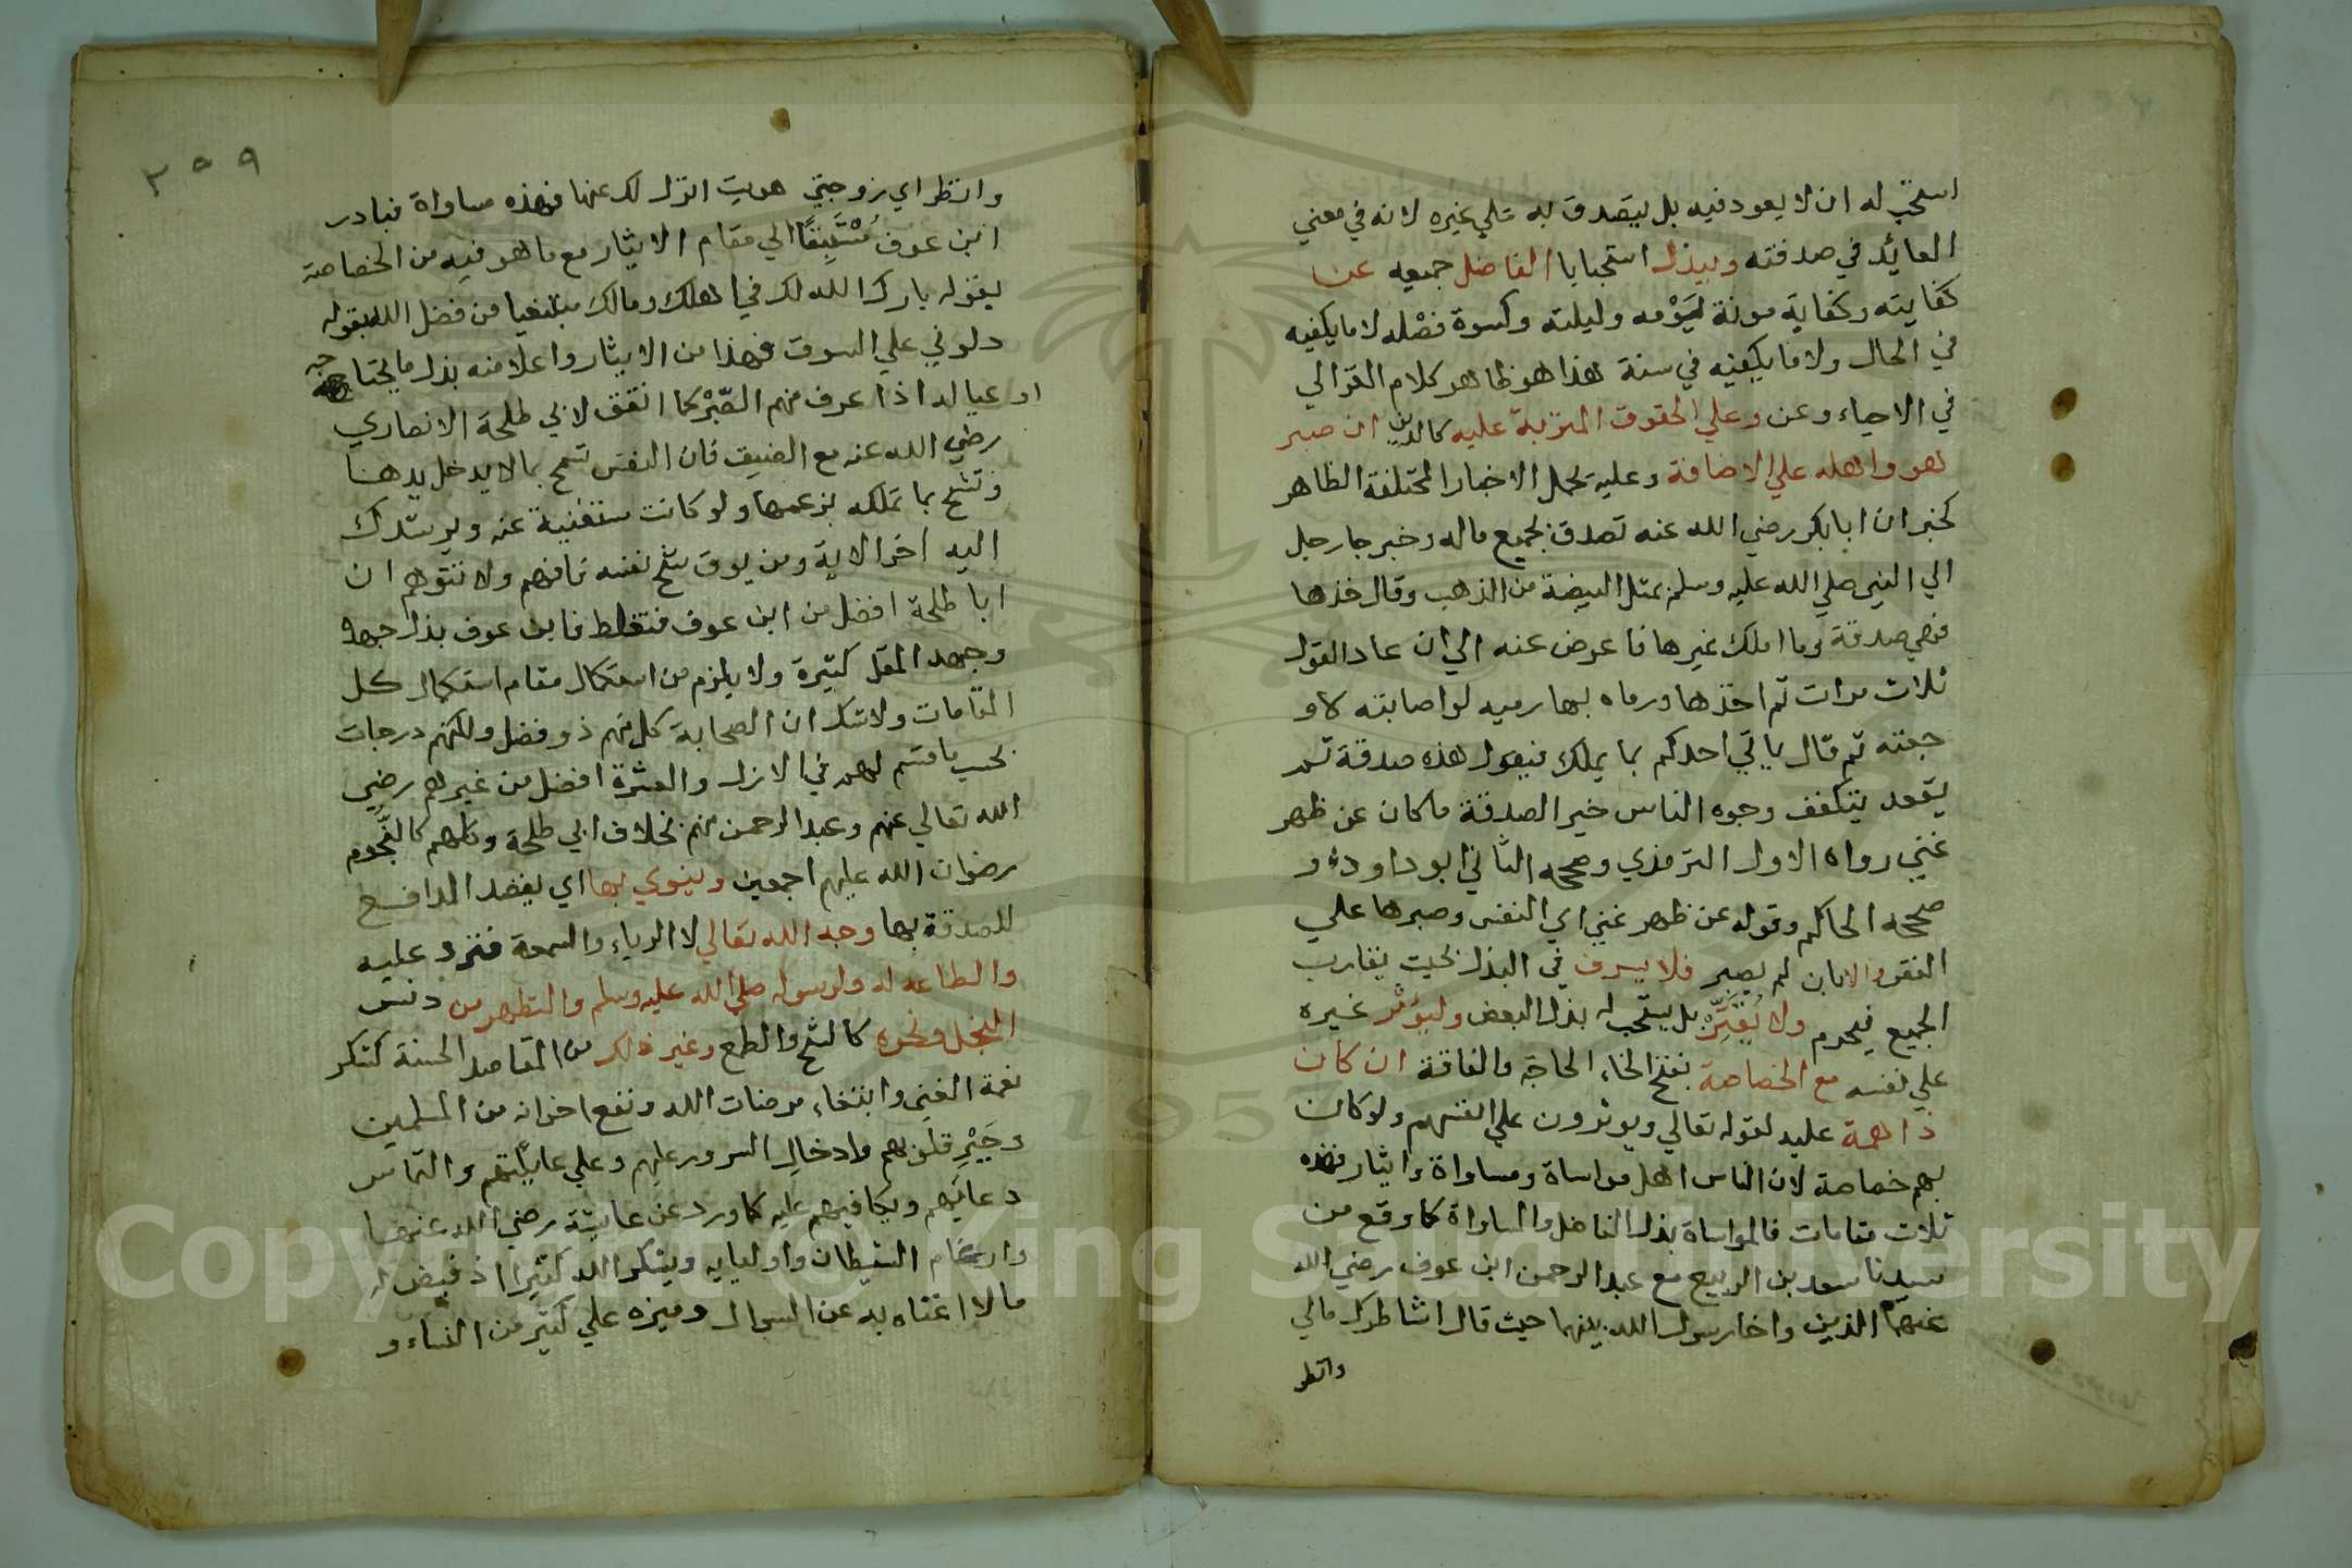 استحب له ان لا يعود فيه بل يتصدق به علي غيره لانه في معني
العائد في صدقته ويبذل استحبابا الفاضل جميعه عن
كفايته وكفاية مونة ليومه وليلته وكسوة فصله لا ما يكفيه
في الحال ولا ما يكفيه في سنة هذا هو ظاهر كلام الغزالي
في الاحياء وعن وعلي الحقوق المترتبة عليه كالدين ان صبر
هو واهله علي الاضافة وعليه تحمل الاخبار المختلفة الظاهر
كخبر ان ابا بكر رضي الله عنه تصدق بجميع ماله وخبر جا رجل
الي النبي صلي الله عليه وسلم بمثل البيضة من الذهب وقال خذها
فهي صدقة وما املك غيرها فاعرض عنه الي ان عاد القول
ثلاث مرات ثم اخذها ورماه بها رميه لو اصابته لاو
جعته ثم قال ياتي احدكم بما يملك فيقول هذه صدقة ثم
يقعد يتكفف وجوه الناس خير الصدقة ما كان عن ظهر
غني رواه الاول الترمذي وصححه الثاني ابو داود و
صححه الحاكم وقوله عن ظهر غني اي النفس وصبرها علي
الفقر والا بان لم يصبر فلا يسرف في البذل بحيث يقارب
الجميع فيحرم ولا يُقَتِّرْ بل يستحب له بذل البعض وليوثر غيره
علي نفسه مع الخصاصة بفتح الخاء الحاجة والفاقة ان كان
ذا همة عليه لقوله تعالي ويوثرون علي انفسهم ولو كان
بهم خصاصة لان الناس اهل مواساة ومساواة وايثار فهذه
ثلاث مقامات فالمواساة بذل الفاضل والمساواة كما وقع من
سيدنا سعد بن الربيع مع عبد الرحمن ابن عوف رضي الله
عنهما الذين واخا رسول الله بينهما حيث قال اشاطرك مالي
وانظر
٣٥٩
وانظر اي زوجتي هويت انزل لك عنها فهذه مساواة فبادر
ابن عوف الي مقام الايثار مع ما هو فيه من الخصاصة
بقوله بارك الله لك في اهلك ومالك مبتغيا من فضل الله بقوله
دلوني علي السوق فهذا من الايثار واعلا منه بذل ما يحتاجه
او عياله اذا عرف منهم الصَّبْر كما اتفق لابي طلحة الانصاري
رضي الله عنه مع الضيف فان النفس تسمح بما لا يدخل يدها
وتشح بما تملكه بزعمها ولو كانت مستغنية عنه ويرشدك
اليه اخر الاية ومن يوق شح نفسه فافهم ولا تتوهم ان
ابا طلحة افضل من ابن عوف فتغلط فابن عوف بذل جهده
وجهد المقل كثيرة ولا يلزم من استكمال مقام استكمال كل
المقامات ولا شك ان الصحابة كل منهم ذو فضل ولكنهم درجات
بحسب ما قسم لهم في الازل والعشرة افضل من غيرهم رضي
الله تعالي عنهم وعبد الرحمن منهم بخلاف ابي طلحة وكلهم كالنجوم
رضوان الله عليهم اجمعين وينوي بها اي يقصد الدافع
للصدقة بها وجه الله تعالي لا الرياء والسمعة فترد عليه
والطاعه له ولرسوله صلي الله عليه وسلم والتطهر من دنس
البخل ونحوه كالشح والطمع وغير ذلك من المقاصد الحسنة كشكر
نعمة الغني وابتغاء مرضات الله ونفع اخوانه من المسلمين
وجَبْرِ قلوبهم وادخال السرور عليهم وعلي عايلتهم والتماس
دعايهم ويكافيهم عليه كما ورد عن عايشة رضي الله عنها
وارغام الشيطان واوليايه ويشكر الله كثيرا اذ قيض له
مالا اغناه به عن السوال وميزه علي كثير من الناس و